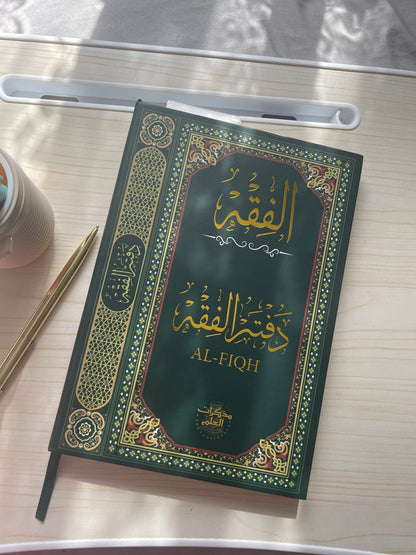 الفقه
دفتر الفقه
AL-FIQH
مذكرات
العلم
دفتر الفقه